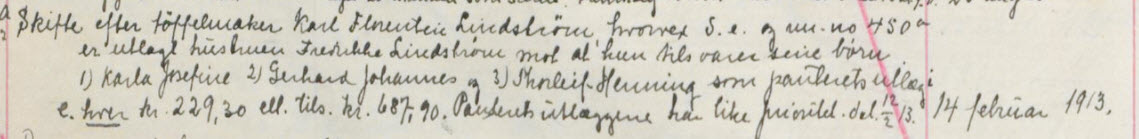 Skifte efter töffelmaker Karl Florentin Lindström, hvorved S. e. og un.-no 450a
er utlagt hustruen Fredrikke Lindström mot at hun tilsvarer sine børn
1) Karla Josefine 2) Gerhard Johannes og 3) Thorleif Henning som panterets utlæg i
e. hver kr. 229,30 ell. tils. kr. 687,90. Panterets utlæggene har like prioritet. dat. 12/2 13. 14 februar 1913.